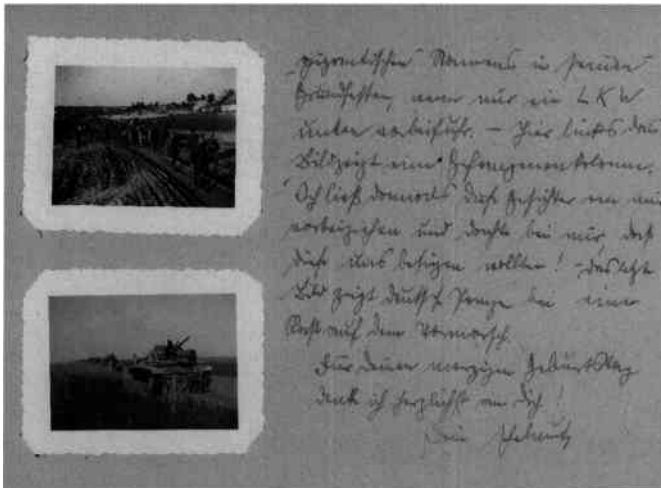 gigantischen Namens in seinen
Grundfesten, wenn nur ein LKW
unten vorbeifuhr. – Hier links das
Bild zeigt eine Gefangenenkolonne.
Ich ließ damals diese Gesichter an mir
vorbeiziehen und dachte bei mir, daß
diese uns besiegen wollten! – Das letzte
Bild zeigt deutsche Panzer bei einer
Rast auf dem Vormarsch.
Für Deinen morgigen Geburtstag
denk ich herzlichst an Dich!
Dein